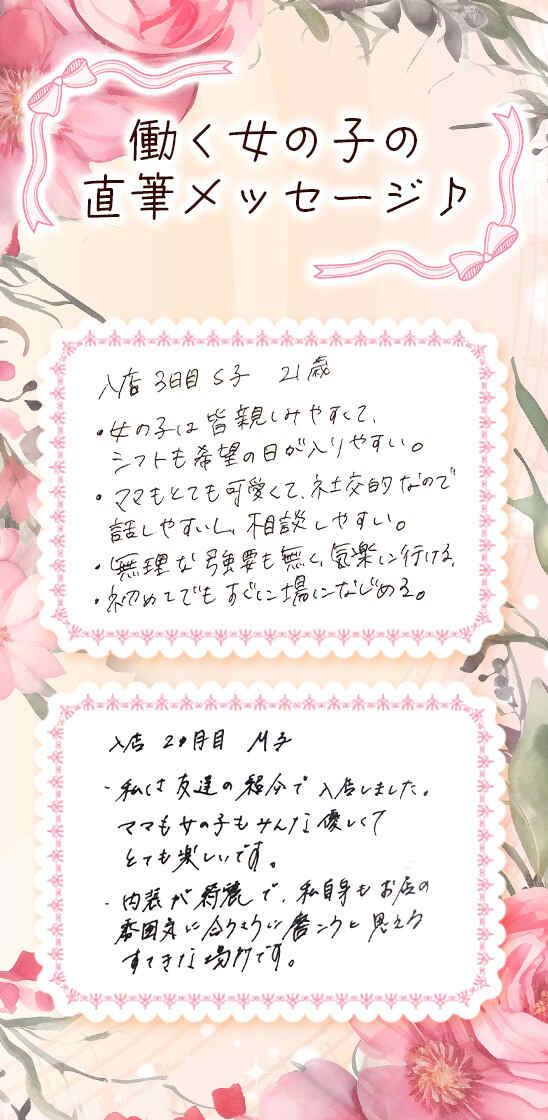 働く女の子の
直筆メッセージ♪
入店 3日目 S子 21歳
・女の子は皆親しみやすくて、
シフトも希望の日が入りやすい。
・ママもとても可愛くて、社交的なので
話しやすいし、相談しやすい。
・無理な強要も無く、気楽に行ける。
・初めてでもすぐに場になじめる。
入店 2ヶ月目 M子
・私は友達の紹介で入店しました。
ママも女の子もみんな優しくて
とても楽しいです。
・内装が綺麗で、私自身もお店の
雰囲気に合うように磨こうと思える
すてきな場所です。